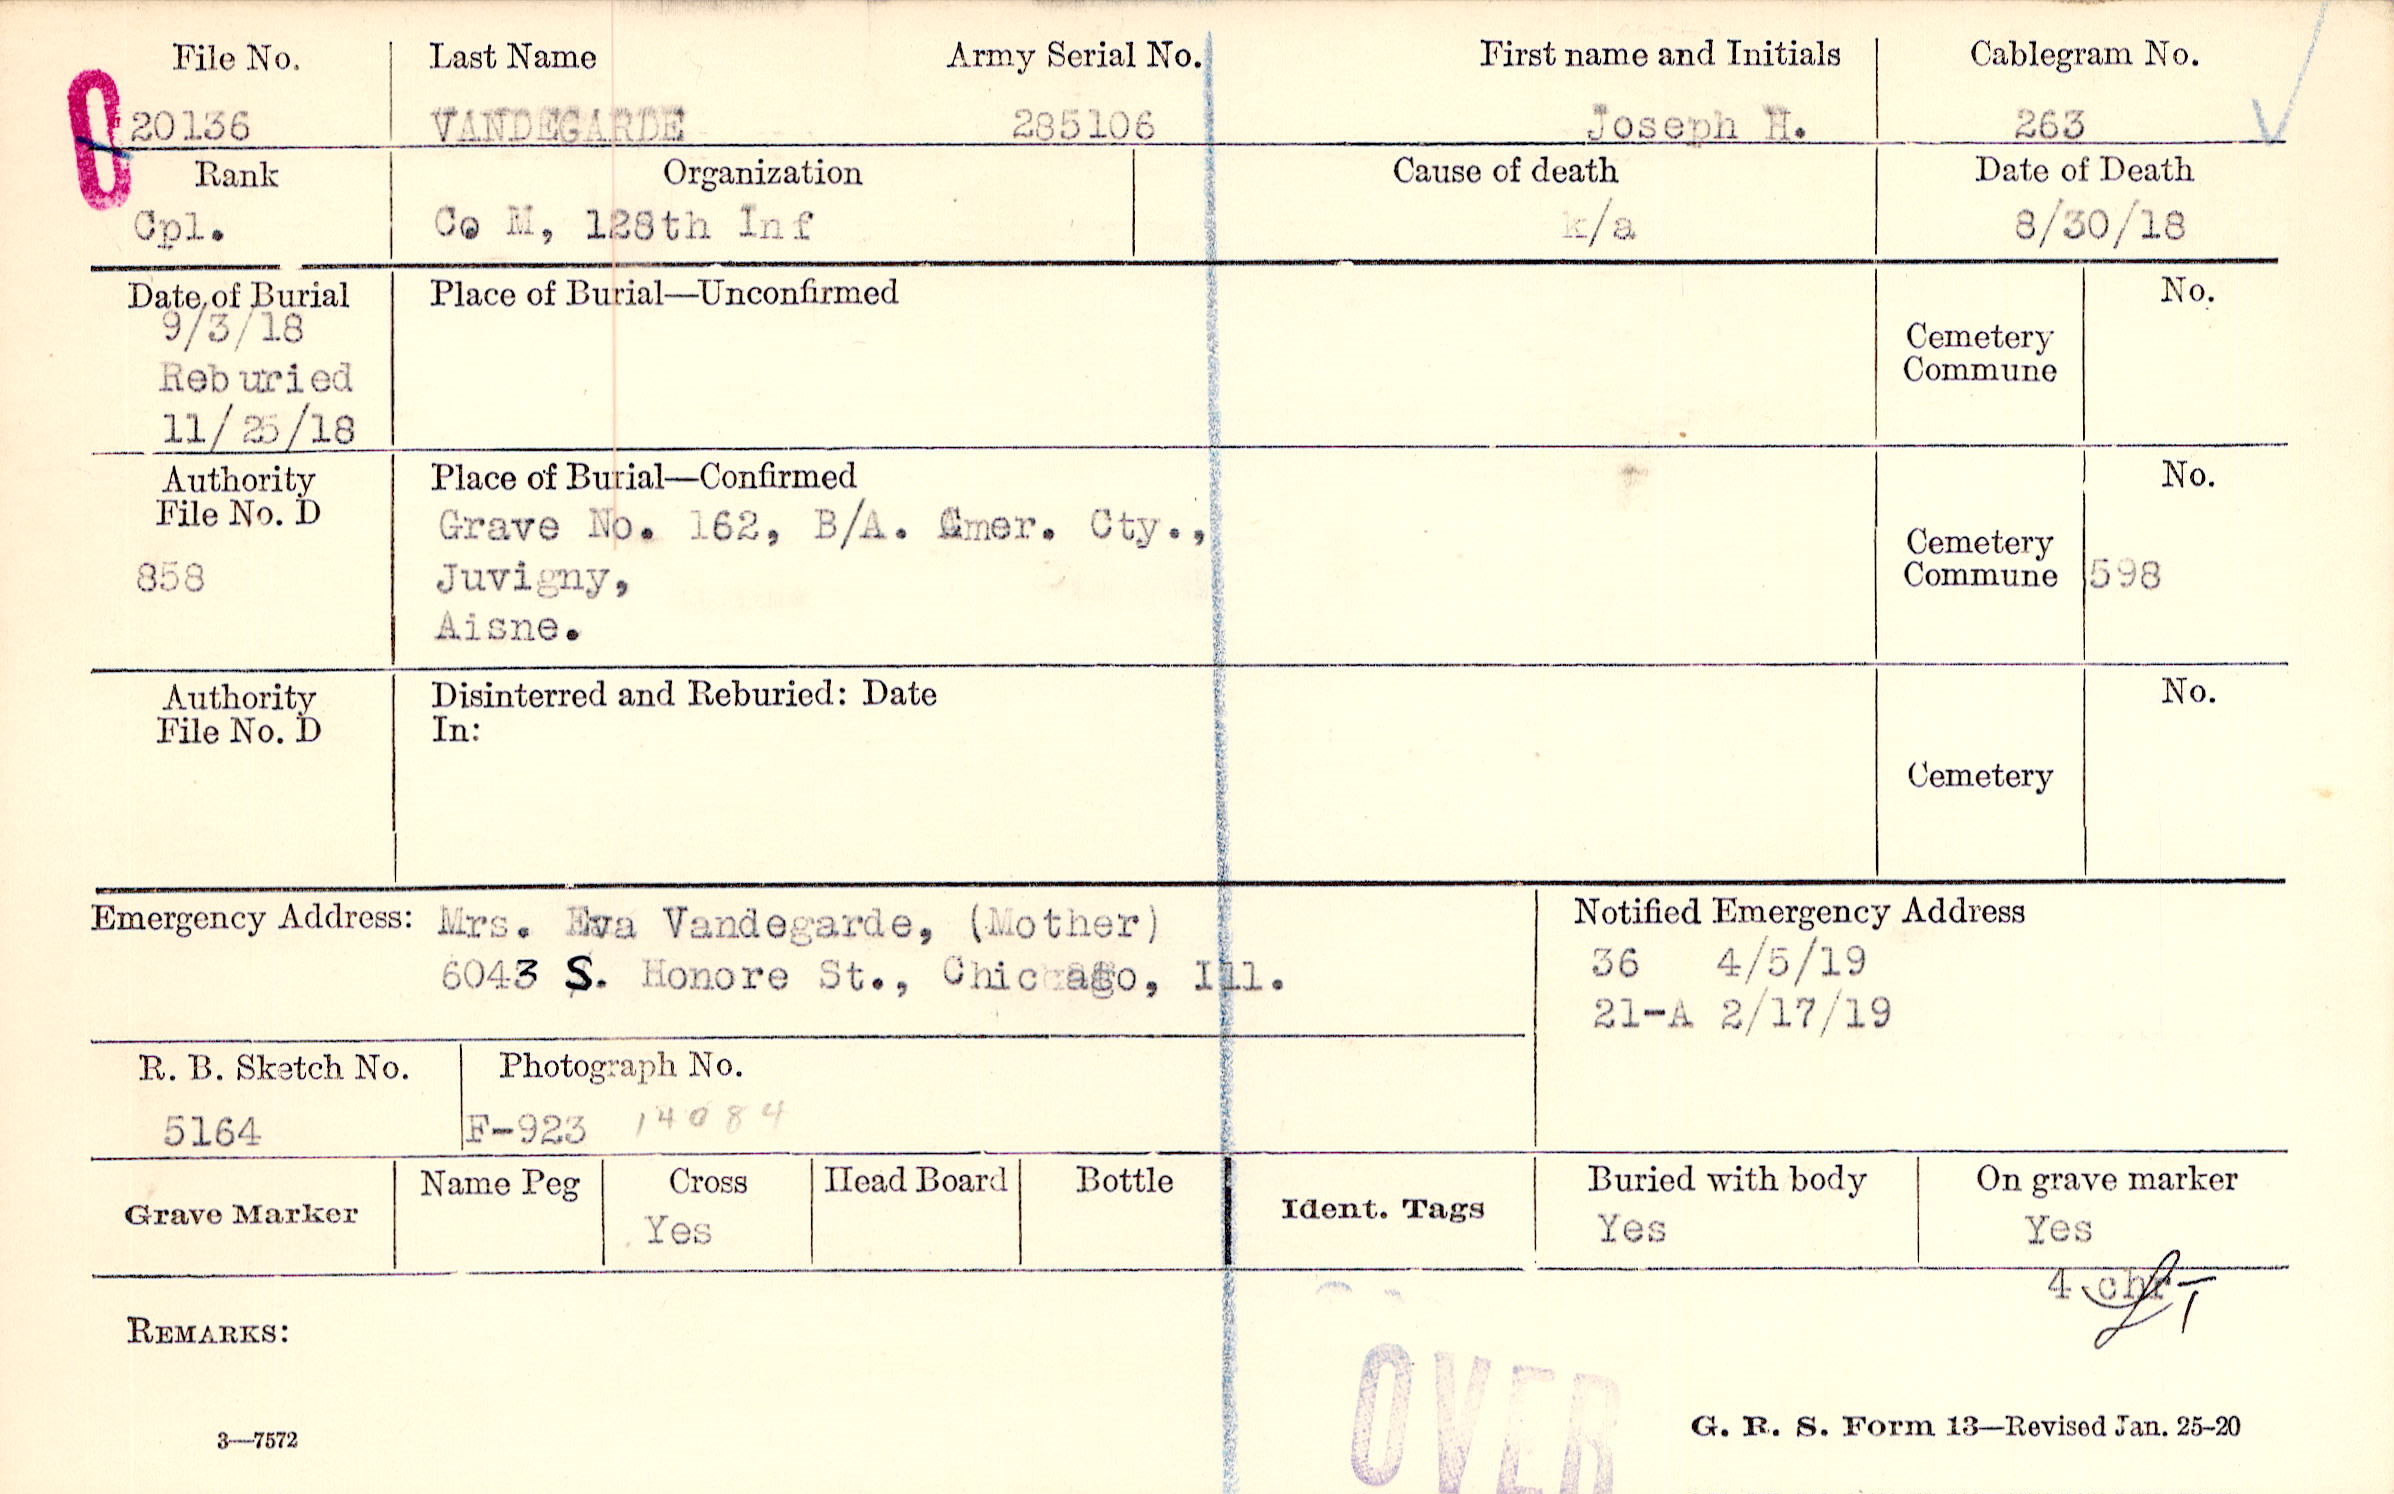 File No. Last Name Army Serial No. First name and Initials Cablegram No.
20136 VANDEGARDE 285106 Joseph H. 263
Rank Organization Cause of death Date of Death
Cpl. Co M, 128th Inf k/a 8/30/18
Date of Burial Place of Burial—Unconfirmed No.
9/3/18
Reburied
11/25/18
Cemetery
Commune
Authority Place of Burial—Confirmed No.
File No. D
Grave No. 162, B/A. Amer. Cty.,
858 Juvigny, Cemetery
Commune 598
Aisne.
Authority Disinterred and Reburied: Date No.
File No. D In:
Cemetery
Emergency Address: Mrs. Eva Vandegarde, (Mother) Notified Emergency Address
6043 S. Honore St., Chicago, Ill. 36 4/5/19
21-A 2/17/19
R. B. Sketch No. Photograph No.
5164 F-923 14084
Grave Marker Name Peg Cross Head Board Bottle Ident. Tags Buried with body On grave marker
Yes Yes Yes
4 chr
REMARKS:
OVER
3—7572 G. R. S. Form 13—Revised Jan. 25-20